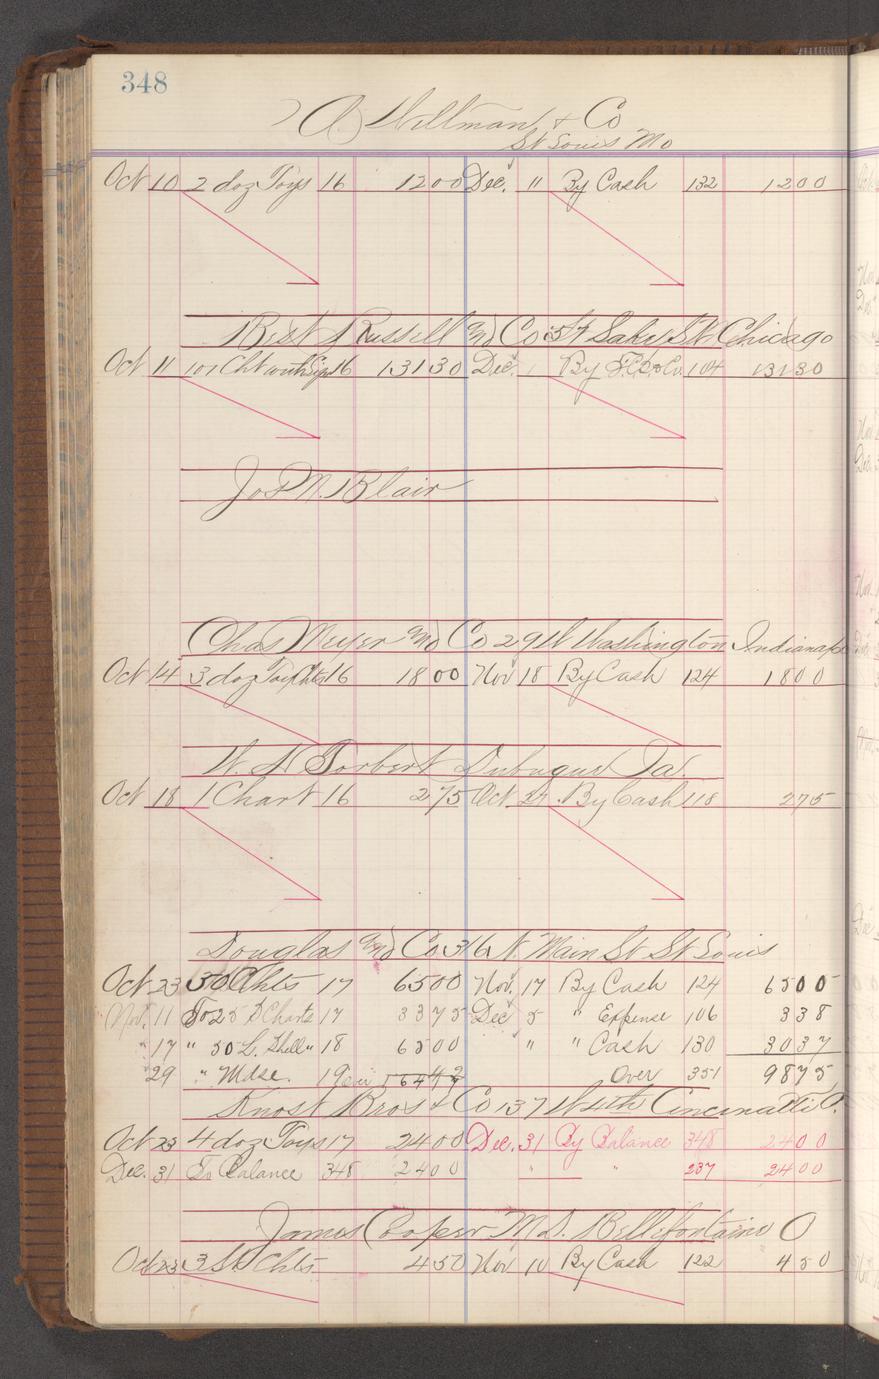 348
A. Hillman & Co
St Louis Mo
Oct 10 2 doz Toys 16 12 00 Dec. 11 By Cash 132 12 00
Best Russell and Co 57 Lake St Chicago
Oct 11 101 Cht with 16 131 30 Dec. 1 By 104 131 30
Jos M. Blair
Chas Meyer and Co 29 W Washington
Oct 14 3 doz Toy Chts 16 18 00 Nov 18 By Cash 124 18 00
W. H Torbert Dubuque Ia.
Oct 18 1 Chart 16 2 75 Oct 27 By Cash 118 2 75
Douglas and Co 316 N. Main St St Louis
Oct 23 50 Chts 17 65 00 Nov. 17 By Cash 124 65 00
Nov. 11 To 25 D Charts 17 33 75 Dec 5 " Expense 106 3 38
" 17 " 50 L. Shell " 18 65 00 " " Cash 130 30 37
29 " Mdse. 19 Over 351 98 75
Knost Bros & Co 137 W 4th Cincinatti O.
Oct 23 4 doz Toys 17 24 00 Dec. 31 By Balance 348 24 00
Dec. 31 To Balance 348 24 00 " " 237 24 00
James Cooper M.D. Bellifontaine O
Oct 23 3 Chts 4 50 Nov 10 By Cash 122 4 50